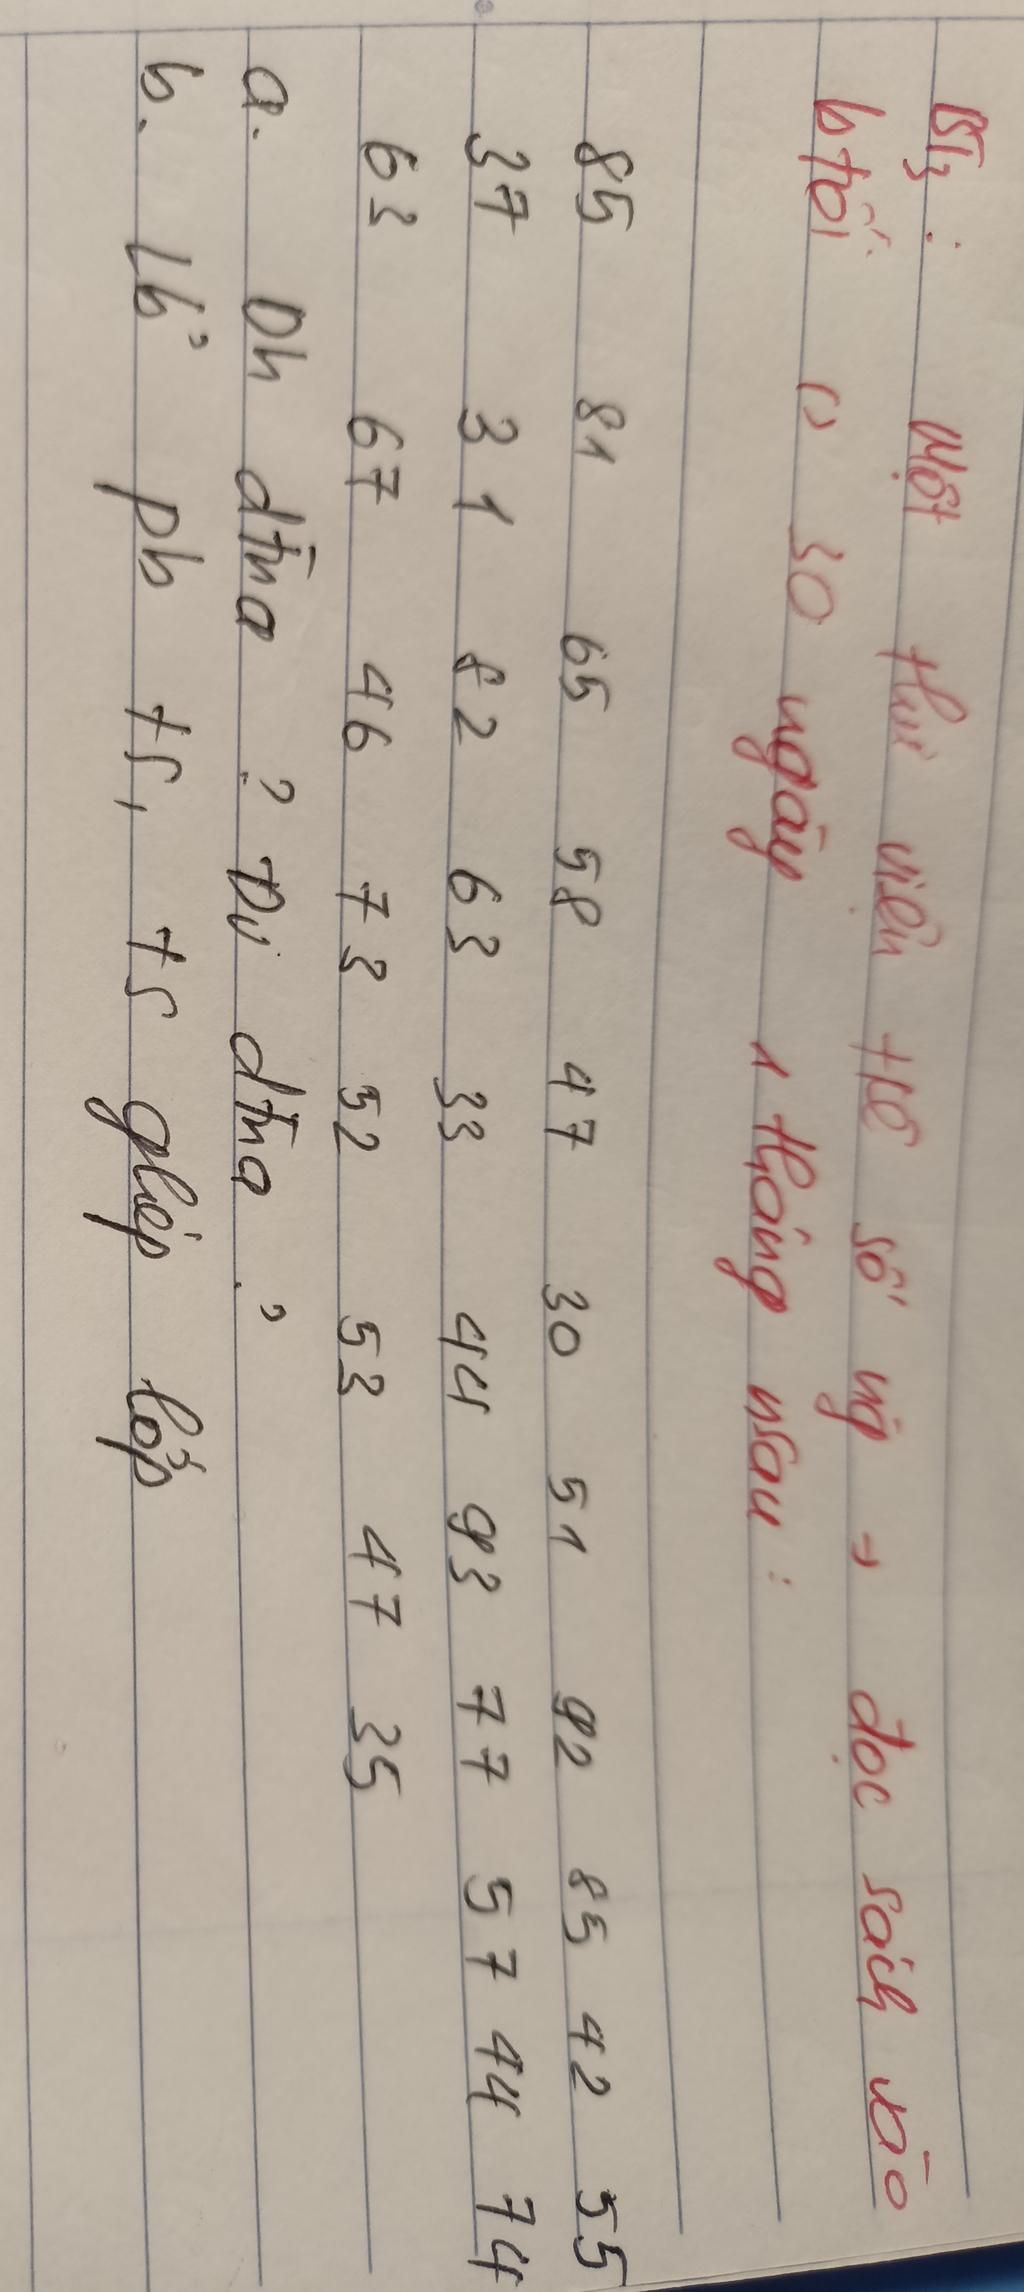 BT3: Một thư viện t kê số ng → đọc sách vào
b tối () 30 ngày 1 tháng nsau:
85 81 65 58 47 30 51 92 85 42 55
37 31 82 63 33 44 93 77 57 44 74
63 67 46 73 52 53 47 35
a. Dh đtra? Đvị đtra?
b. Lb? pb tS, tS ghép lớp